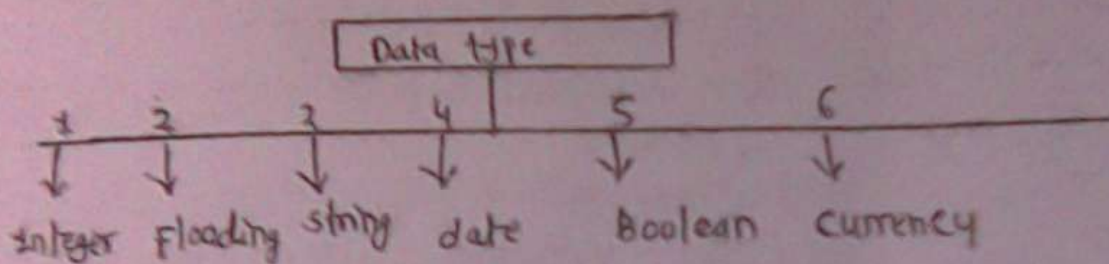 Data type
1 2 3 4 5 6
Integer Floading string date Boolean currency